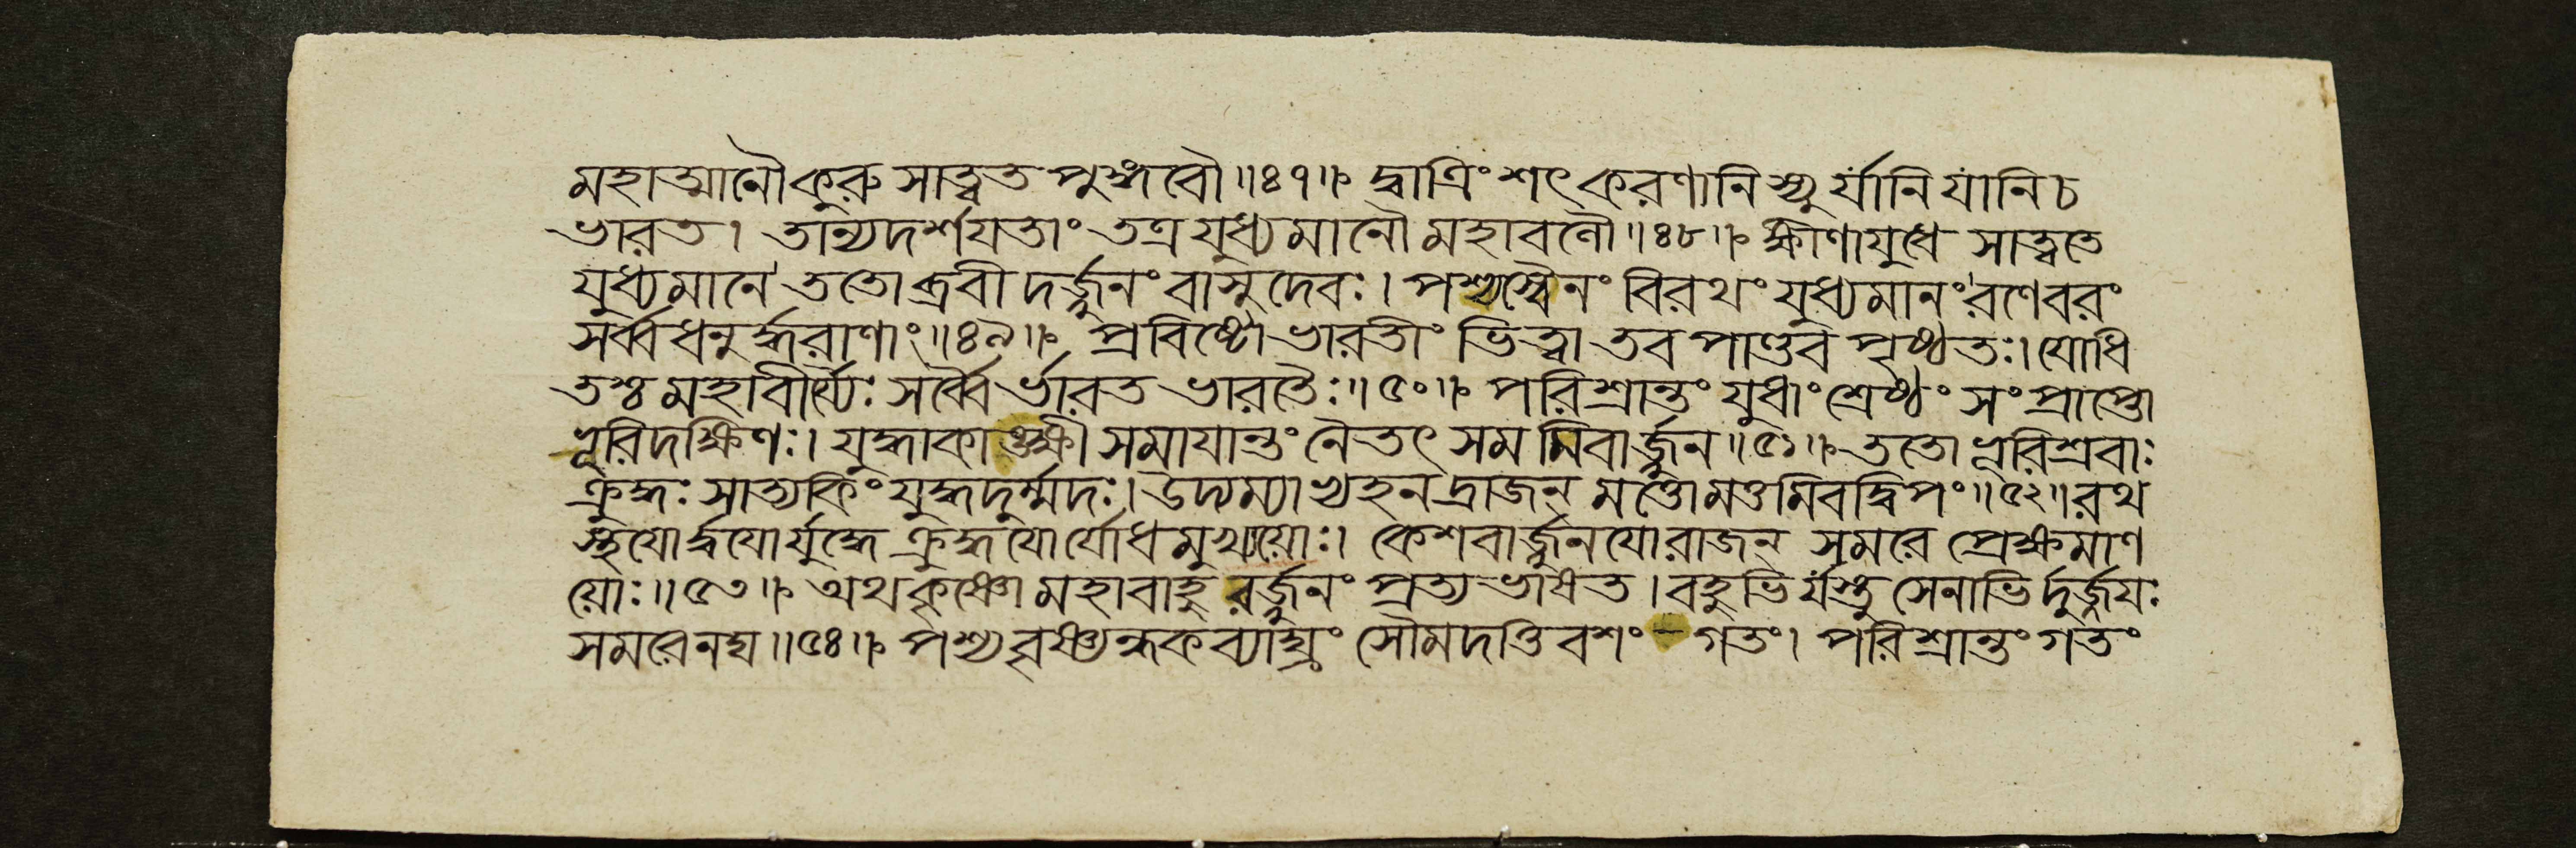 মহাত্মানৌ কুরু সাত্বত পুঙ্গবৌ॥৪৭॥ দ্বাত্রিংশৎ করণানি স্যুর্যানি যানি চ
ভারত। তান্যদর্শযতাং তত্র যুধ্যমানৌ মহাবলৌ॥৪৮॥ ক্ষীণাযুধে সাত্বতে
যুধ্যমানে ততো ব্রবী দর্জ্জুনং বাসুদেবঃ। পশ্যস্বৈনং বিরথং যুধ্যমানং রণেবরং
সর্ব্বধনুর্দ্ধরাণাং॥৪৯॥ প্রবিষ্টো ভারতীং ভিত্বা তব পাণ্ডব পৃষ্ঠতঃ। যোধি
তশ্চ মহাবীর্য্যৈঃ সর্ব্বৈর্ভারত ভারতৈঃ॥৫০॥ পরিশ্রান্তং যুধাং শ্রেষ্ঠং সংপ্রাপ্তো
ভূরিদক্ষিণঃ। যুদ্ধাকাঙ্ক্ষী সমাযান্তং নৈতৎ সমমিবার্জ্জুন॥৫১॥ ততো ভূরিশ্রবাঃ
ক্রুদ্ধঃ সাত্যকিং যুদ্ধদুর্ম্মদঃ। উদ্যম্যাভ্যহনদ্রাজন্ মত্তো মত্তমিবদ্বিপং॥৫২॥ রথ
স্থযোর্দ্বযোর্যুদ্ধে ক্রুদ্ধযোর্যোধমুখ্যয়োঃ। কেশবার্জ্জুনযোরাজন্ সমরে প্রেক্ষমাণ
য়োঃ॥৫৩॥ অথ কৃষ্ণো মহাবাহুরর্জ্জুনং প্রত্যভাষত। বহুভির্যস্তু সেনাভির্দুর্জ্জযঃ
সমরেনঘ॥৫৪॥ পশ্য বৃষ্ণ্যন্ধকব্যাঘ্রং সৌমদত্তিবশং গতং। পরিশ্রান্তং গতং